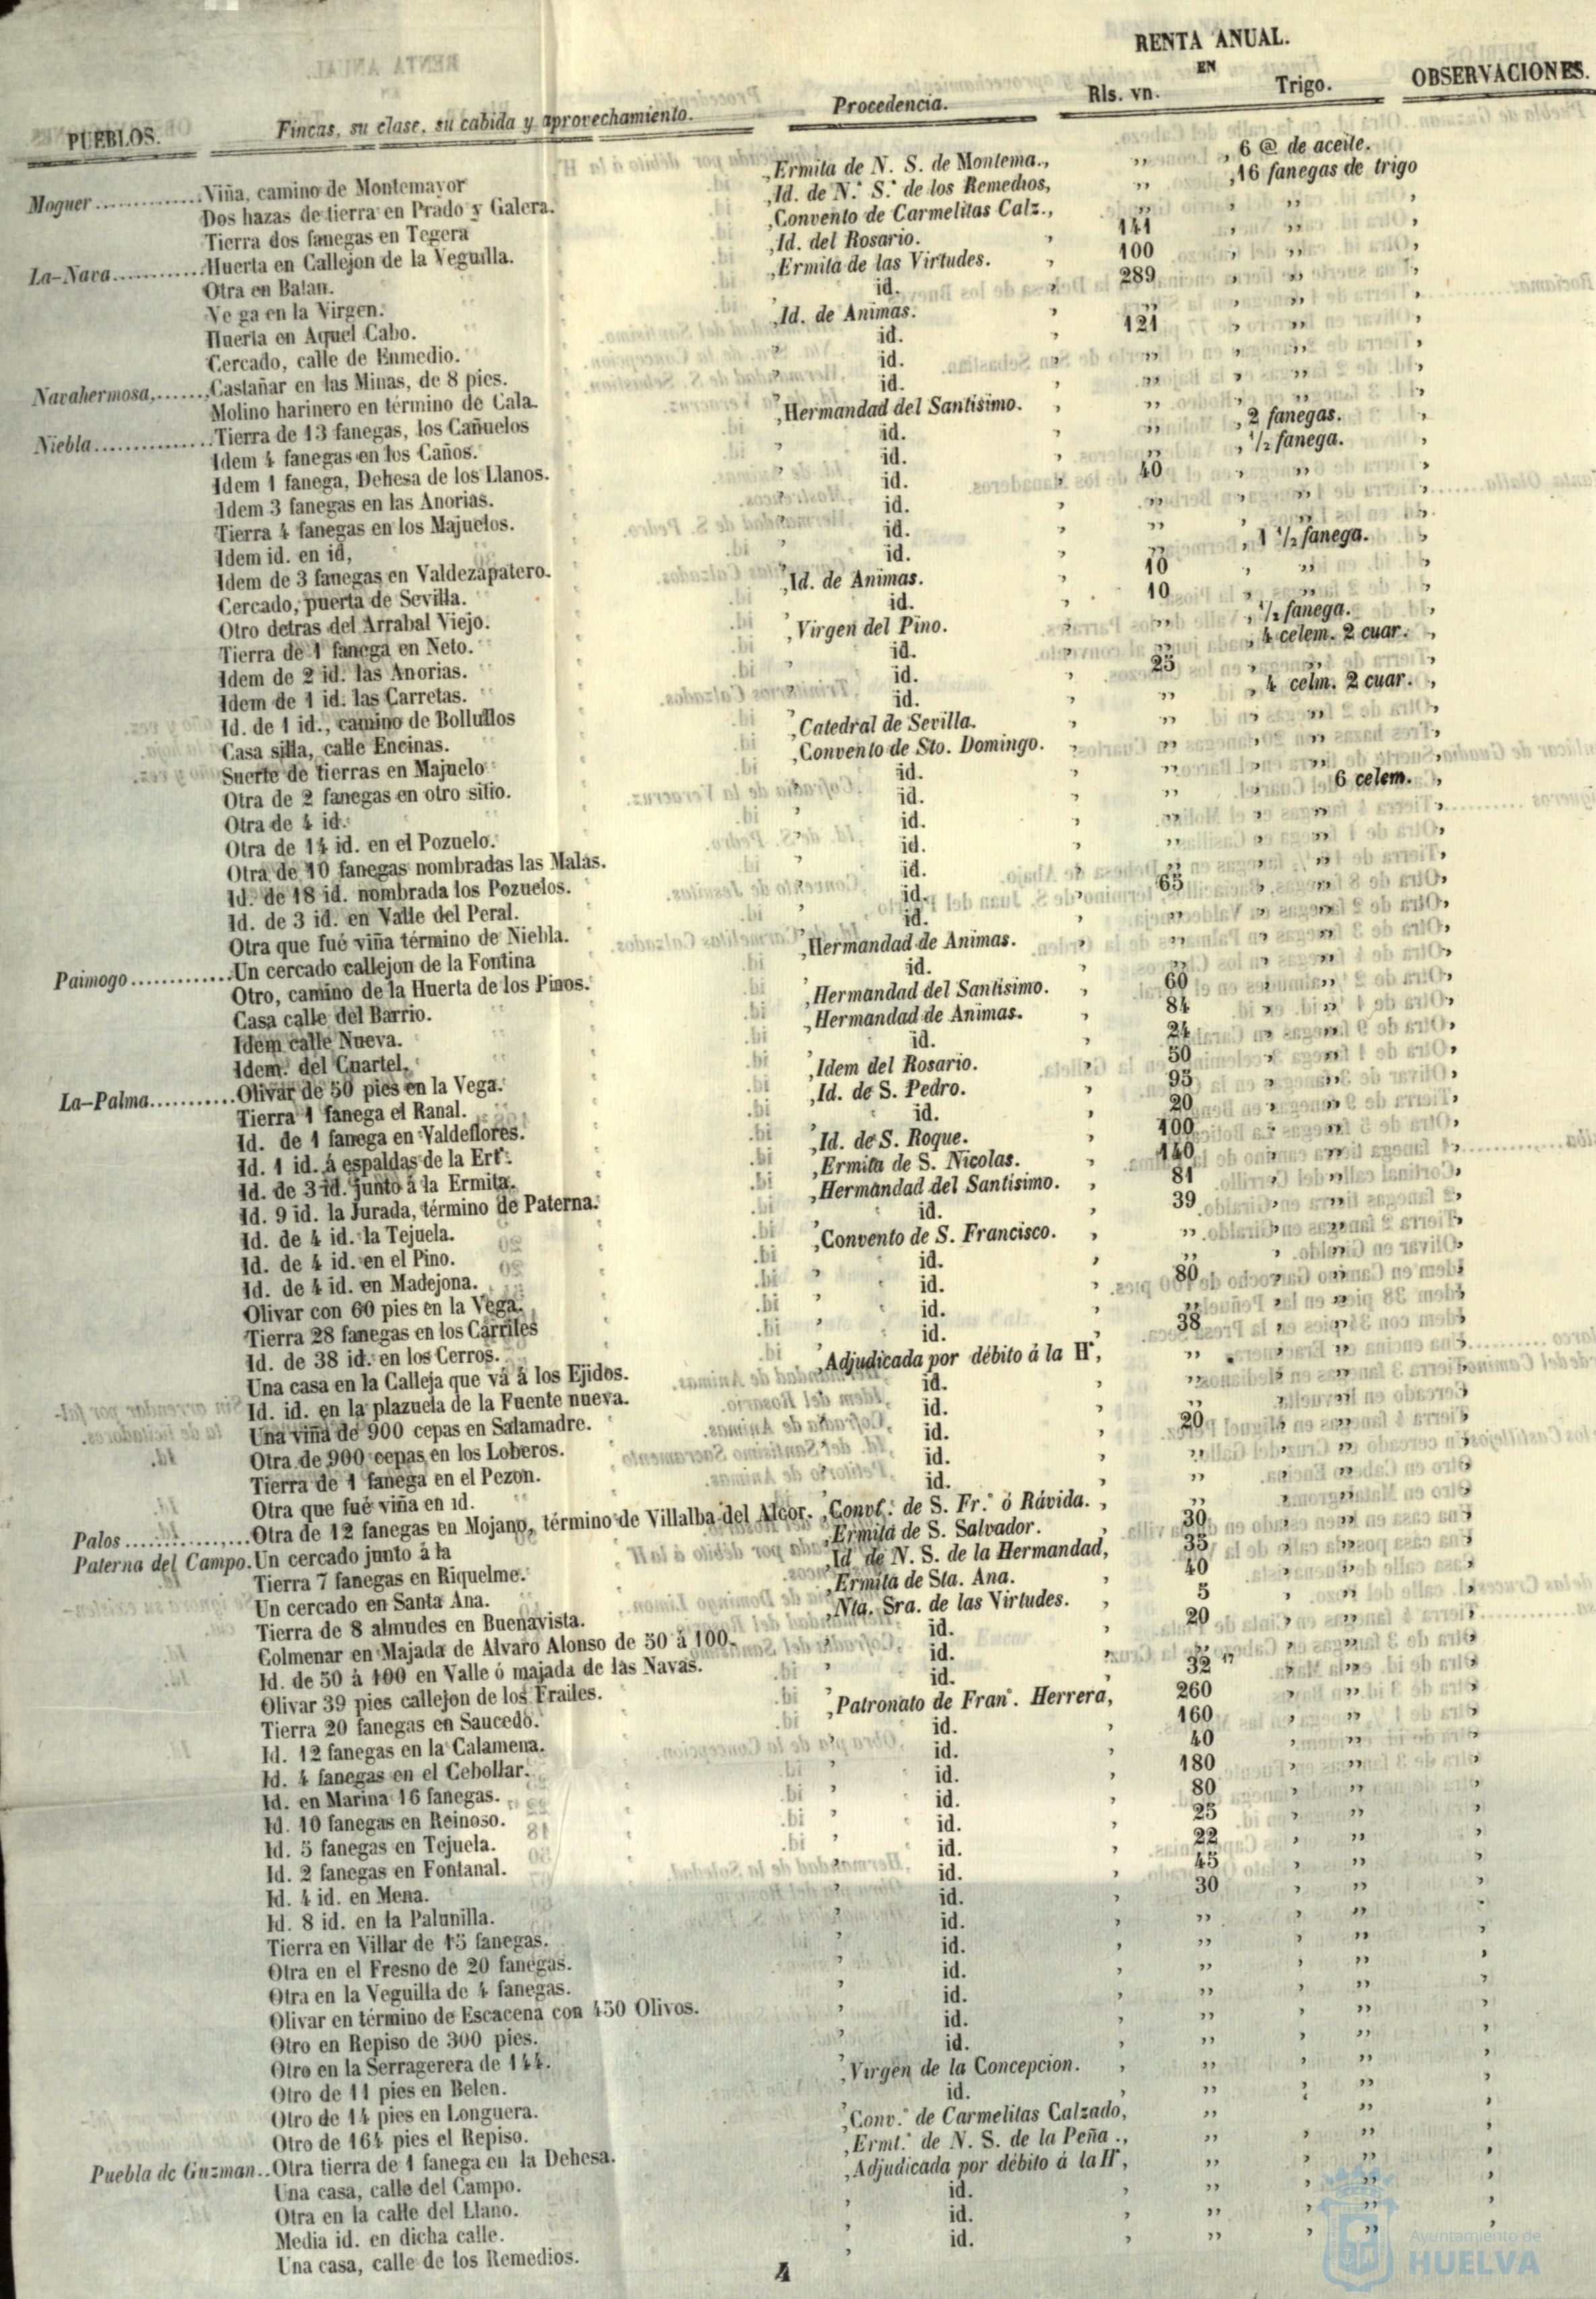 RENTA ANUAL.
EN
PUEBLOS. Fincas, su clase, su cabida y aprovechamiento. Procedencia. Rls. vn. Trigo. OBSERVACIONES.
Moguer.............Viña, camino de Montemayor ,Ermita de N. S. de Montema., ,, , 6 @ de aceite.
Dos hazas de tierra en Prado y Galera. ,Id. de N.ª S.ª de los Remedios, ,, ,16 fanegas de trigo
Tierra dos fanegas en Tegera ,Convento de Carmelitas Calz., ,, , ,, ,
La-Nava...........Huerta en Callejon de la Veguilla. ,Id. del Rosario. , 141 , ,, ,
Otra en Batan. ,Ermita de las Virtudes. , 100 , ,, ,
Ve ga en la Virgen. , id. , 289 , ,, ,
Huerta en Aquel Cabo. ,Id. de Animas. , ,, , ,, ,
Cercado, calle de Enmedio. , id. , 121 , ,, ,
Navahermosa,......,Castañar en las Minas, de 8 pies. , id. , ,, , ,, ,
Molino harinero en término de Cala. , id. , ,, , ,, ,
Niebla..............Tierra de 13 fanegas, los Cañuelos ,Hermandad del Santisimo. , ,, , ,, ,
Idem 4 fanegas en los Caños. , id. , ,, , 2 fanegas. ,
Idem 1 fanega, Dehesa de los Llanos. , id. , ,, , 1/2 fanega. ,
Idem 3 fanegas en las Anorias. , id. , 40 , ,, ,
Tierra 4 fanegas en los Majuelos. , id. , ,, , ,, ,
Idem id. en id, , id. , ,, , ,, ,
Idem de 3 fanegas en Valdezapatero. , id. , ,, , 1 1/2 fanega. ,
Cercado, puerta de Sevilla. ,Id. de Animas. , 10 , ,, ,
Otro detras del Arrabal Viejo. , id. , 10 , ,, ,
Tierra de 1 fanega en Neto. ,Virgen del Pino. , ,, , 1/2 fanega. ,
Idem de 2 id. las Anorias. , id. , ,, , 4 celem. 2 cuar. ,
Idem de 1 id. las Carretas. , id. , 25 , ,, ,
Id. de 1 id., camino de Bollullos , id. , ,, , 4 celm. 2 cuar. ,
Casa silla, calle Encinas. ,Catedral de Sevilla. , ,, , ,, ,
Suerte de tierras en Majuelo ,Convento de Sto. Domingo. , ,, , ,, ,
Otra de 2 fanegas en otro sitio. , id. , ,, , ,, ,
Otra de 4 id. , id. , ,, , 6 celem. ,
Otra de 14 id. en el Pozuelo. , id. , ,, , ,, ,
Otra de 10 fanegas nombradas las Malas. , id. , ,, , ,, ,
Id. de 18 id. nombrada los Pozuelos. , id. , ,, , ,, ,
Id. de 3 id. en Valle del Peral. , id. , 65 , ,, ,
Otra que fué viña término de Niebla. , id. , ,, , ,, ,
Paimogo............Un cercado callejon de la Fontina ,Hermandad de Animas. , ,, , ,, ,
Otro, camino de la Huerta de los Pinos. , id. , ,, , ,, ,
Casa calle del Barrio. ,Hermandad del Santisimo. , 60 , ,, ,
Idem calle Nueva. ,Hermandad de Animas. , 84 , ,, ,
Idem. del Cuartel. , id. , 24 , ,, ,
La-Palma...........Olivar de 50 pies en la Vega. ,Idem del Rosario. , 50 , ,, ,
Tierra 1 fanega el Ranal. ,Id. de S. Pedro. , 95 , ,, ,
Id. de 1 fanega en Valdeflores. , id. , 20 , ,, ,
Id. 1 id. á espaldas de la Ert.ª ,Id. de S. Roque. , 100 , ,, ,
Id. de 3 id. junto á la Ermita. ,Ermita de S. Nicolas. , 140 , ,, ,
Id. 9 id. la Jurada, término de Paterna. ,Hermandad del Santisimo. , 81 , ,, ,
Id. de 4 id. la Tejuela. , id. , 39 , ,, ,
Id. de 4 id. en el Pino. ,Convento de S. Francisco. , ,, , ,, ,
Id. de 4 id. en Madejona. , id. , ,, , ,, ,
Olivar con 60 pies en la Vega. , id. , 80 , ,, ,
Tierra 28 fanegas en los Carriles , id. , ,, , ,, ,
Id. de 38 id. en los Cerros. , id. , 38 , ,, ,
Una casa en la Calleja que vá á los Ejidos. ,Adjudicada por débito á la Hª, ,, , ,, ,
Id. id. en la plazuela de la Fuente nueva. , id. , ,, , ,, ,
Una viña de 900 cepas en Salamadre. , id. , ,, , ,, ,
Otra de 900 cepas en los Loberos. , id. , 20 , ,, ,
Tierra de 1 fanega en el Pezon. , id. , ,, , ,, ,
Otra que fué viña en id. , id. , ,, , ,, ,
Palos...............Otra de 12 fanegas en Mojano, término de Villalba del Alcor. ,Convt.º de S. Fr.º ó Rávida. , ,, , ,, ,
Paterna del Campo.Un cercado junto á la ,Ermita de S. Salvador. , 30 , ,, ,
Tierra 7 fanegas en Riquelme. ,Id de N. S. de la Hermandad, 35 , ,, ,
Un cercado en Santa Ana. ,Ermita de Sta. Ana. , 40 , ,, ,
Tierra de 8 almudes en Buenavista. ,Nta. Sra. de las Virtudes. , 5 , ,, ,
Colmenar en Majada de Alvaro Alonso de 50 á 100. , id. , 20 , ,, ,
Id. de 50 á 100 en Valle ó majada de las Navas. , id. , ,, , ,, ,
Olivar 39 pies callejon de los Frailes. , id. , 32 17 , ,, ,
Tierra 20 fanegas en Saucedo. ,Patronato de Franº. Herrera, 260 , ,, ,
Id. 12 fanegas en la Calamena. , id. , 160 , ,, ,
Id. 4 fanegas en el Cebollar. , id. , 40 , ,, ,
Id. en Marina 16 fanegas. , id. , 180 , ,, ,
Id. 10 fanegas en Reinoso. , id. , 80 , ,, ,
Id. 5 fanegas en Tejuela. , id. , 25 , ,, ,
Id. 2 fanegas en Fontanal. , id. , 22 , ,, ,
Id. 4 id. en Mena. , id. , 45 , ,, ,
Id. 8 id. en la Palunilla. , id. , 30 , ,, ,
Tierra en Villar de 15 fanegas. , id. , ,, , ,, ,
Otra en el Fresno de 20 fanegas. , id. , ,, , ,, ,
Otra en la Veguilla de 4 fanegas. , id. , ,, , ,, ,
Olivar en término de Escacena con 450 Olivos. , id. , ,, , ,, ,
Otro en Repiso de 300 pies. , id. , ,, , ,, ,
Otro en la Serragerera de 144. , id. , ,, , ,, ,
Otro de 11 pies en Belen. ,Virgen de la Concepcion. , ,, , ,, ,
Otro de 14 pies en Longuera. , id. , ,, , ,, ,
Otro de 164 pies el Repiso. ,Conv.º de Carmelitas Calzado, ,, , ,, ,
Puebla de Guzman..Otra tierra de 1 fanega en la Dehesa. ,Ermt.ª de N. S. de la Peña ., ,, , ,, ,
Una casa, calle del Campo. ,Adjudicada por débito á la Hª, ,, , ,, ,
Otra en la calle del Llano. , id. , ,, , ,, ,
Media id. en dicha calle. , id. , ,, , ,, ,
Una casa, calle de los Remedios. , id. , ,, , ,, ,
4
Ayuntamiento de
HUELVA